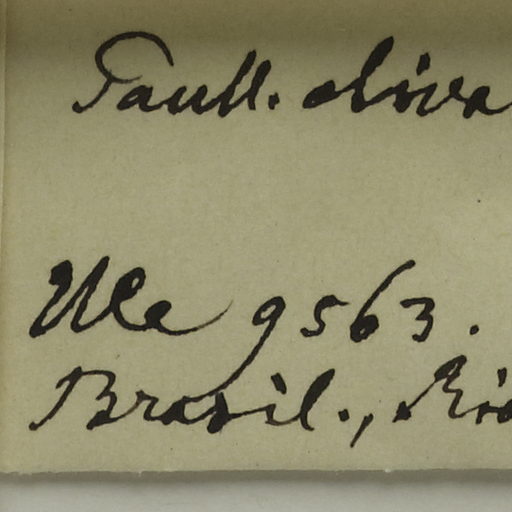 Paull. oliva
Ule 9563.
Brasil., Rio